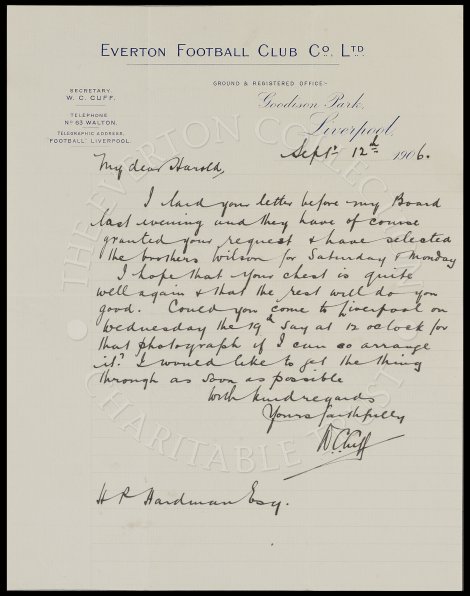 EVERTON FOOTBALL CLUB CO. LTD
GROUND & REGISTERED OFFICE:-
SECRETARY.
W. C. CUFF.
Goodison Park,
TELEPHONE
NO 63 WALTON.
Liverpool,
TELEGRAPHIC ADDRESS,
FOOTBALL LIVERPOOL.
Septr 12th 1906.
My dear Harold,
I laid your letter before my Board
last evening and they have of course
granted your request & have selected
the brothers Wilson for Saturday & Monday
I hope that your chest is quite
well again & that the rest will do you
good. Could you come to Liverpool on
Wednesday the 19th say at 12 oclock for
that photograph if I can so arrange
it? I would like to get the thing
through as soon as possible
With kind regards
Yours faithfully
W.C. Cuff
H P Hardman Esq.
© THE EVERTON COLLECTION
CHARITABLE TRUST